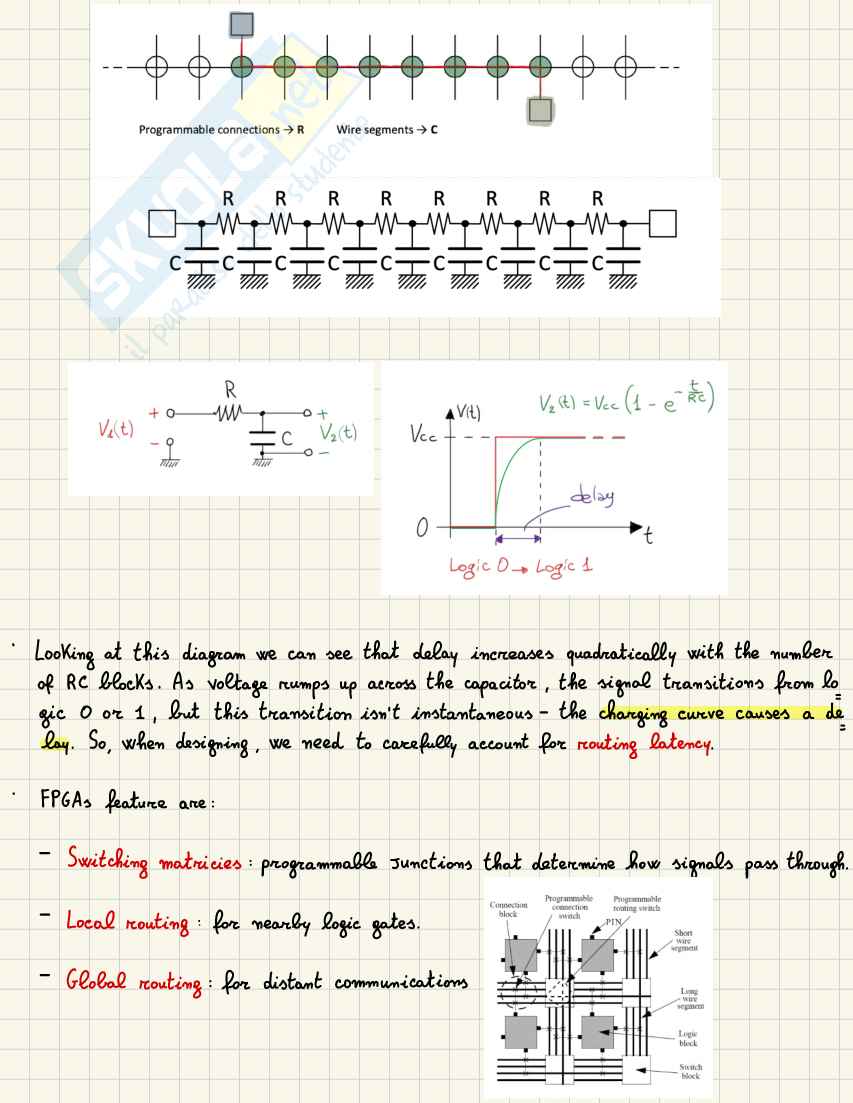 SKUOLA.net
il paradiso dello studente
Programmable connections → R Wire segments → C
R R R R R R R R
C C C C C C C C C
R
V₁(t) + − C + V₂(t) −
V₂(t) = Vcc (1 - e^{-t/RC})
V(t)
Vcc
delay
0 t
Logic 0 → Logic 1
· Looking at this diagram we can see that delay increases quadratically with the number
of RC blocks. As voltage rumps up across the capacitor, the signal transitions from lo
gic 0 or 1, but this transition isn't instantaneous - the charging curve causes a de
lay. So, when designing, we need to carefully account for routing latency.
· FPGAs feature are:
- Switching matricies: programmable junctions that determine how signals pass through.
- Local routing: for nearby logic gates.
- Global routing: for distant communications
Connection
block
Programmable
connection
switch
Programmable
routing switch
PIN
Short
wire
segment
Long
wire
segment
Logic
block
Switch
block